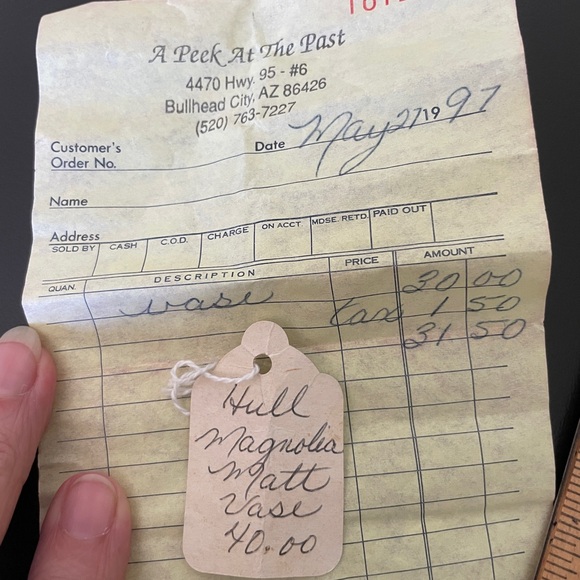 A Peek At The Past
4470 Hwy. 95 - #6
Bullhead City, AZ 86426
(520) 763-7227
Customer's
Order No.
Date May 27 1997
Name
Address
SOLD BY CASH C.O.D. CHARGE ON ACCT. MDSE. RETD. PAID OUT
QUAN. DESCRIPTION PRICE AMOUNT
vase 30 00
tax 1 50
31 50
Hull
Magnolia
Matt
Vase
40.00